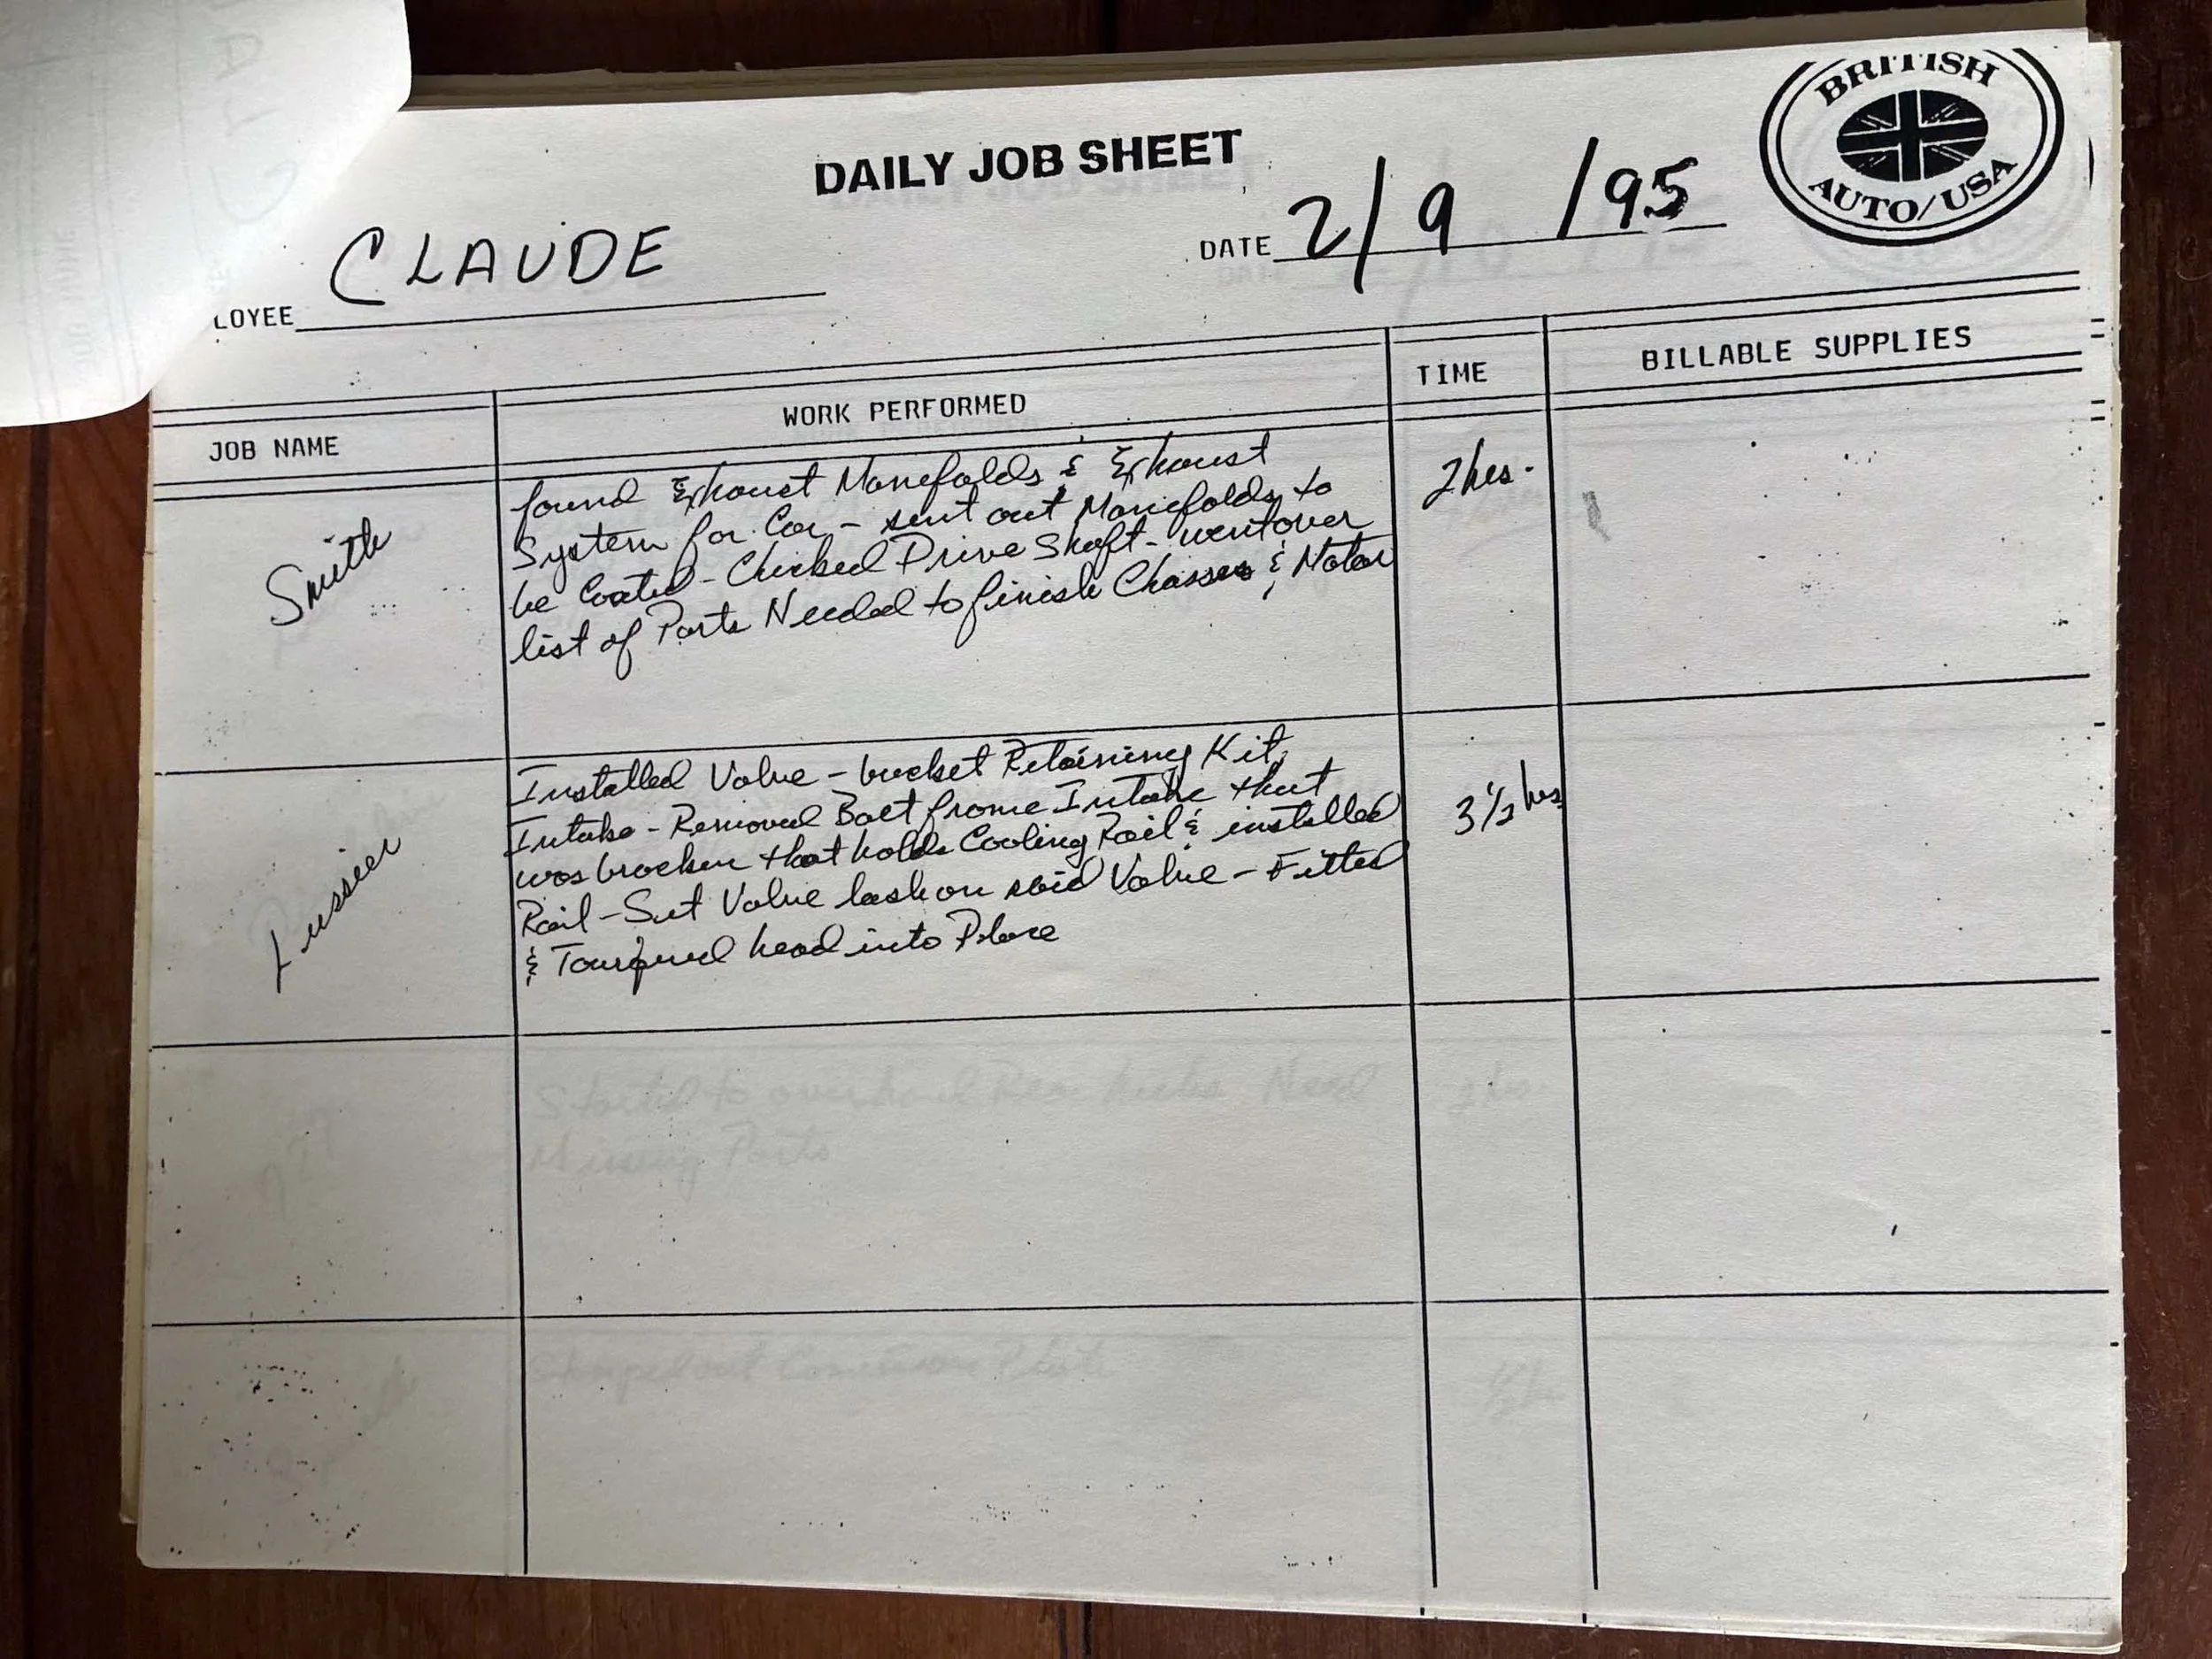 BRITISH
AUTO/USA
DAILY JOB SHEET
LOYEE CLAUDE
DATE 2/9/95
JOB NAME
WORK PERFORMED
TIME
BILLABLE SUPPLIES
Smith
found Exhoust Manefolds & Exhoust
System for Car - sent out Manefolds to
be Coated - Checked Drive Shaft - went over
list of Parts Needed to finish Chasses & Motor
2 hrs.
Lussier
Installed Valve - bucket Retaining Kit,
Intake - Removed Bolt frome Intake that
was brocken that holds Cooling Rail & installed
Rail - Set Valve lash on said Valve - Fitted
& Tourqued head into Place
3 1/2 hrs
Started to overhaul Rear Need
Missing Parts